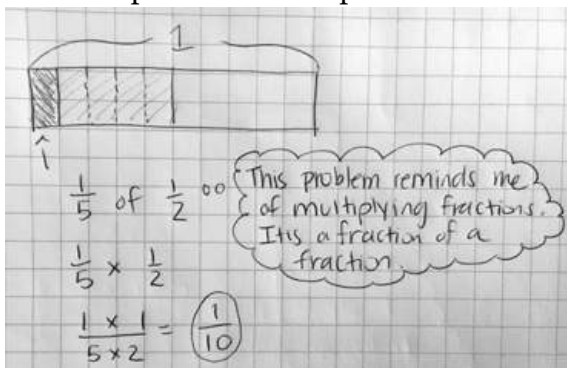 1
1
1/5 of 1/2
This problem reminds me
of multiplying fractions.
It is a fraction of a
fraction.
1/5 x 1/2
1 x 1 / 5 x 2 = 1/10